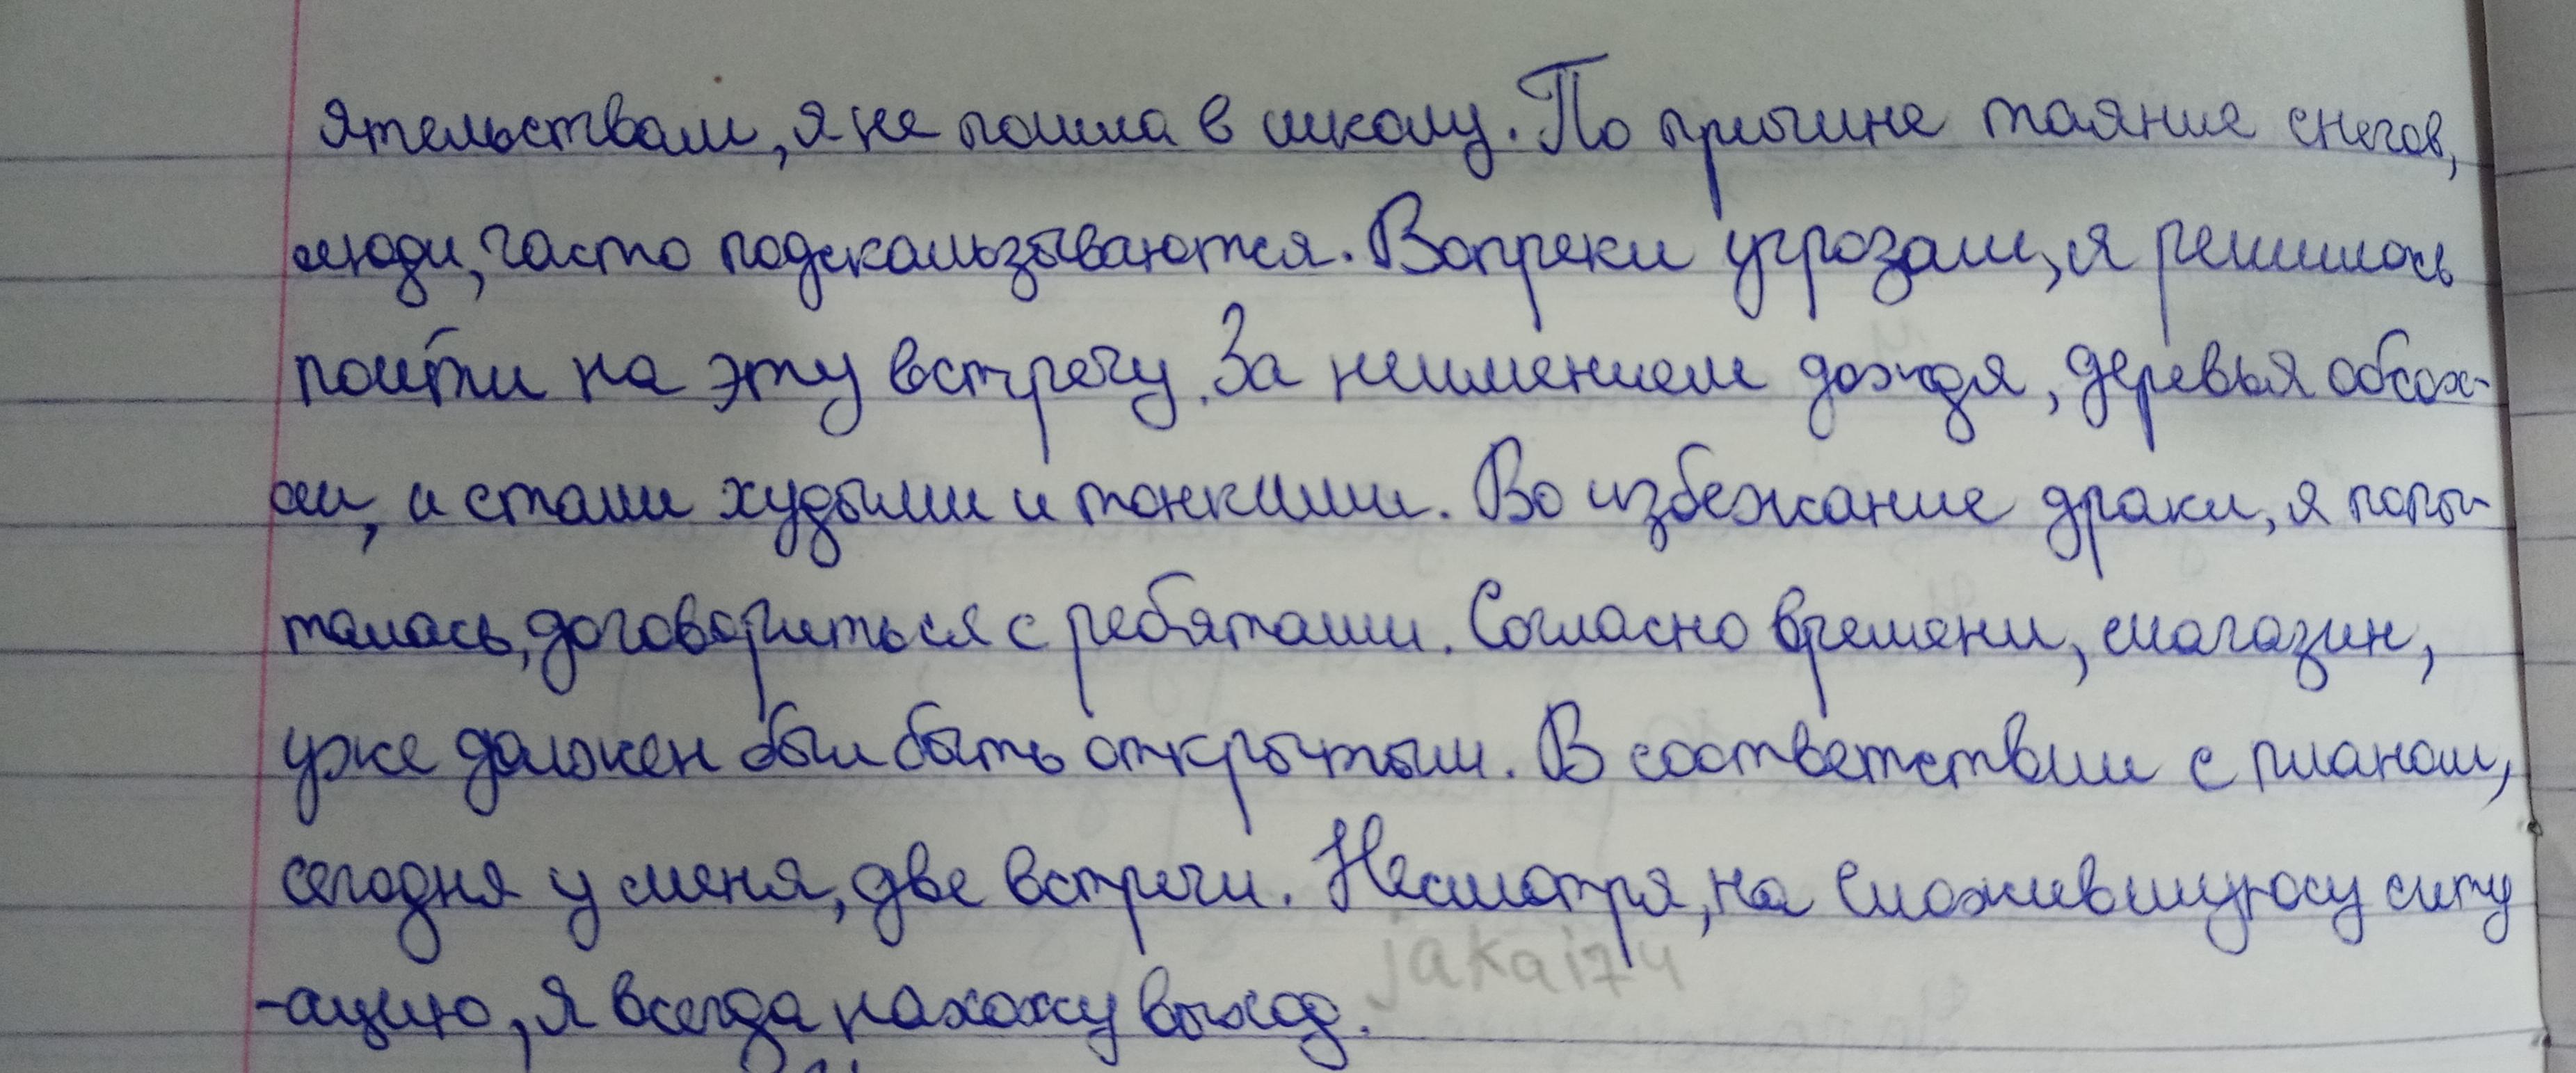 ятельствам, я не пошла в школу. По причине таяние снегов,
люди, часто подскальзываются. Вопреки угрозам, я решилась
пойти на эту встречу. За неимением дождя, деревья обсох-
ли, и стали худыми и тонкими. Во избежание драки, я попы-
талась, договориться с ребятами. Согласно времени, магазин,
уже должен был быть открытым. В соответствии с планом,
сегодня у меня, две встречи. Несмотря, на сложившуюсу ситу
-ацию, я всегда нахожу выход.
jakai74